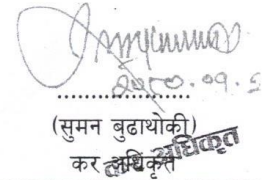 २०८०.०१.६
....................
(सुमन बुढाथोकी)
कर अधिकृत
कर अधिकृत